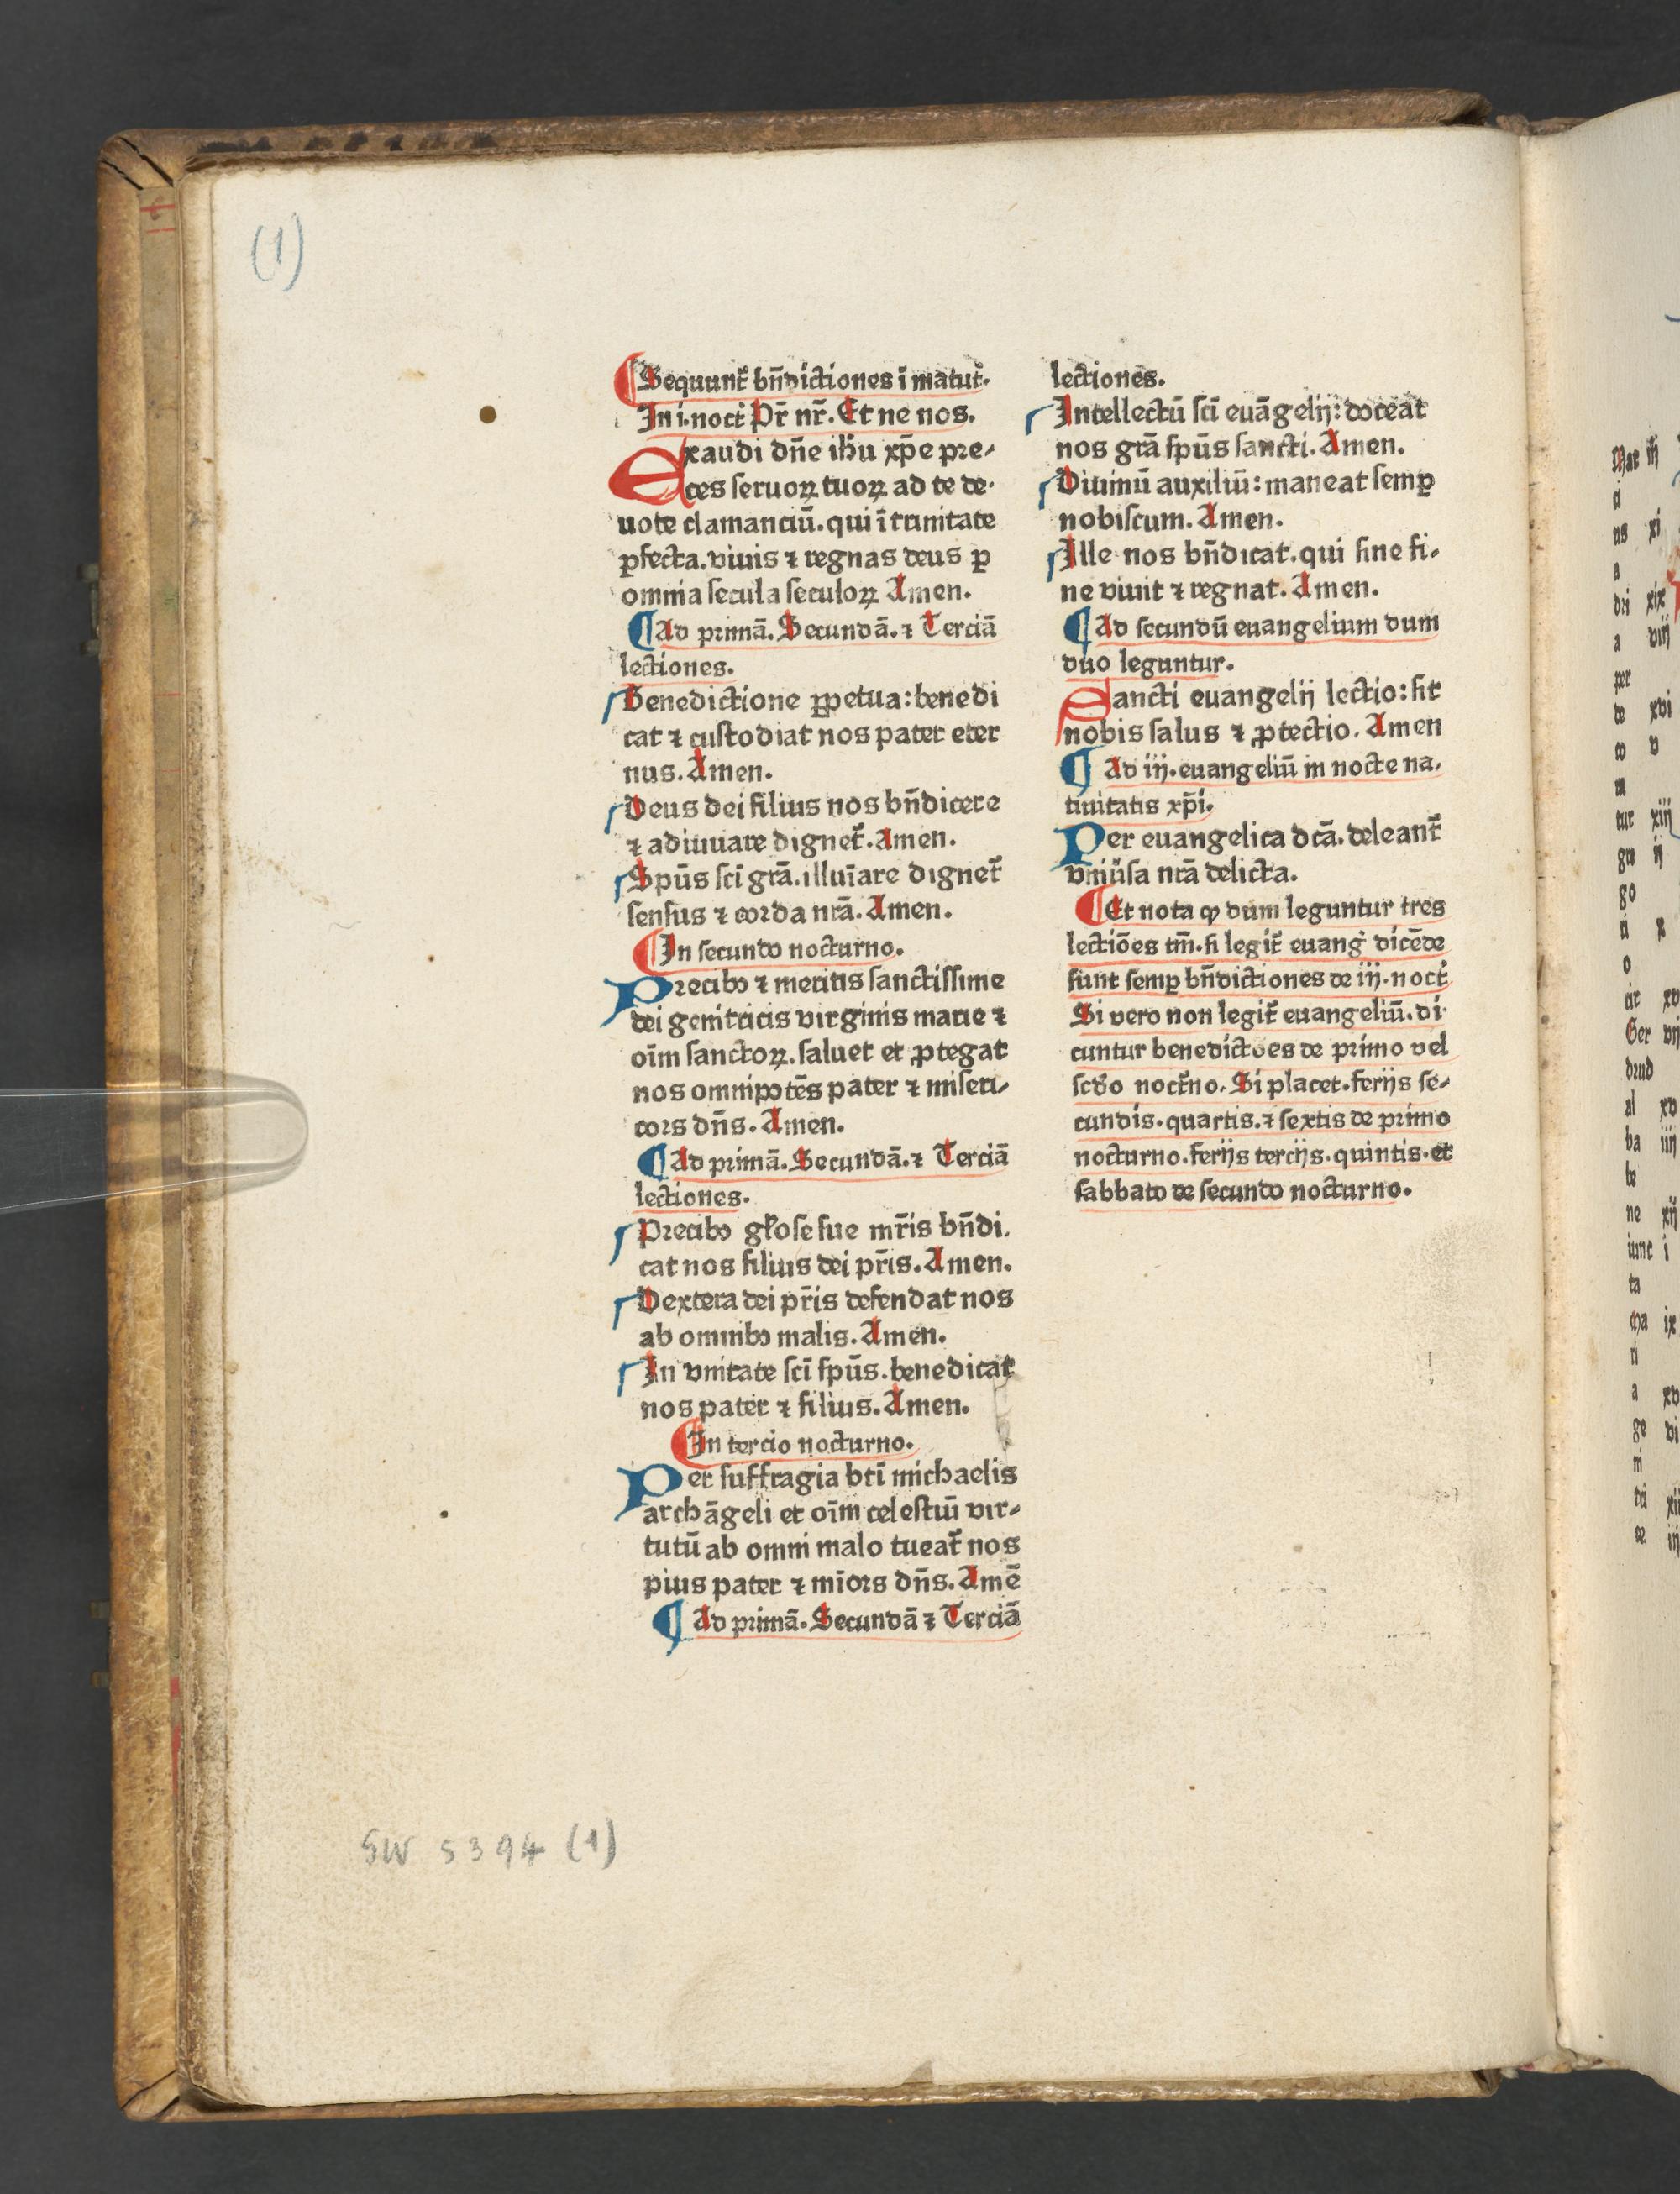 (1)
¶Sequunt᷑ bn̄dictiones ī matut᷑.
In i. noct᷑ Pr̄ nr̄. Et ne nos.
Exaudi dn̄e ihu̅ xp̄e pre⸗
ces seruoꝝ tuoꝝ ad te de⸗
uote clamanciū. qui ī trinitate
ꝑfecta. viuis ⁊ regnas deus ꝑ
omnia secula seculoꝝ Amen.
¶Ad primā. Secundā. ⁊ Terciā
lectiones.
Benedictione ꝑpetua: benedi
cat ⁊ custodiat nos pater eter
nus. Amen.
Deus dei filius nos bn̄dicere
⁊ adiuuare dignet᷑. Amen.
Spūs sci̅ grā. illuīare dignet᷑
sensus ⁊ corda nr̄a. Amen.
¶In secundo nocturno.
Precibꝯ ⁊ meritis sanctissime
dei genitricis virginis marie ⁊
oīm sanctoꝝ. saluet et ꝓtegat
nos omnipotēs pater ⁊ miseri⸗
cors dn̄s. Amen.
¶Ad primā. Secundā. ⁊ Terciā
lectiones.
Precibꝯ gło̅se sue mr̄is bn̄di⸗
cat nos filius dei pr̄is. Amen.
Dextera dei pr̄is defendat nos
ab omnibꝯ malis. Amen.
In vnitate sci̅ spūs. benedicat
nos pater ⁊ filius. Amen.
¶In tercio nocturno.
Per suffragia bti̅ michaelis
archāgeli et oīm celestiū vir⸗
tutū ab omni malo tueat᷑ nos
pius pater ⁊ mīors dn̄s. Amē
¶Ad primā. Secundā ⁊ Terciā
lectiones.
Intellectū sci̅ euāgelij: doceat
nos grā spūs sancti. Amen.
Diuinū auxiliū: maneat semꝑ
nobiscum. Amen.
Ille nos bn̄dicat. qui sine fi⸗
ne viuit ⁊ regnat. Amen.
¶Ad secundū euangelium dum
duo leguntur.
Sancti euangelij lectio: sit
nobis salus ⁊ ꝓtectio. Amen
¶Ad iij. euangeliū in nocte na⸗
tiuitatis xp̄i.
Per euangelica dc̄a. deleant᷑
vniūsa nr̄a delicta.
¶Et nota ꝙ dum leguntur tres
lectiōes tm̄. si legit᷑ euang᷑ dicēde
sunt semꝑ bn̄dictiones de iij. noct᷑
Si vero non legit᷑ euangeliū. di⸗
cuntur benedictōes de primo vel
scd̄o noct᷑no. Si placet. ferijs se⸗
cundis. quartis. ⁊ sextis de primo
nocturno. ferijs tercijs. quintis. et
sabbato de secundo nocturno.
GW 5394 (1)